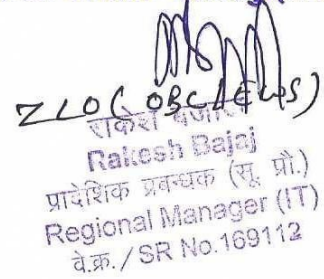 ZLO (OBC/EWS)
राकेश बजाज
Rakesh Bajaj
प्रादेशिक प्रबन्धक (सू. प्रौ.)
Regional Manager (IT)
वे.क्र. / SR No.169112